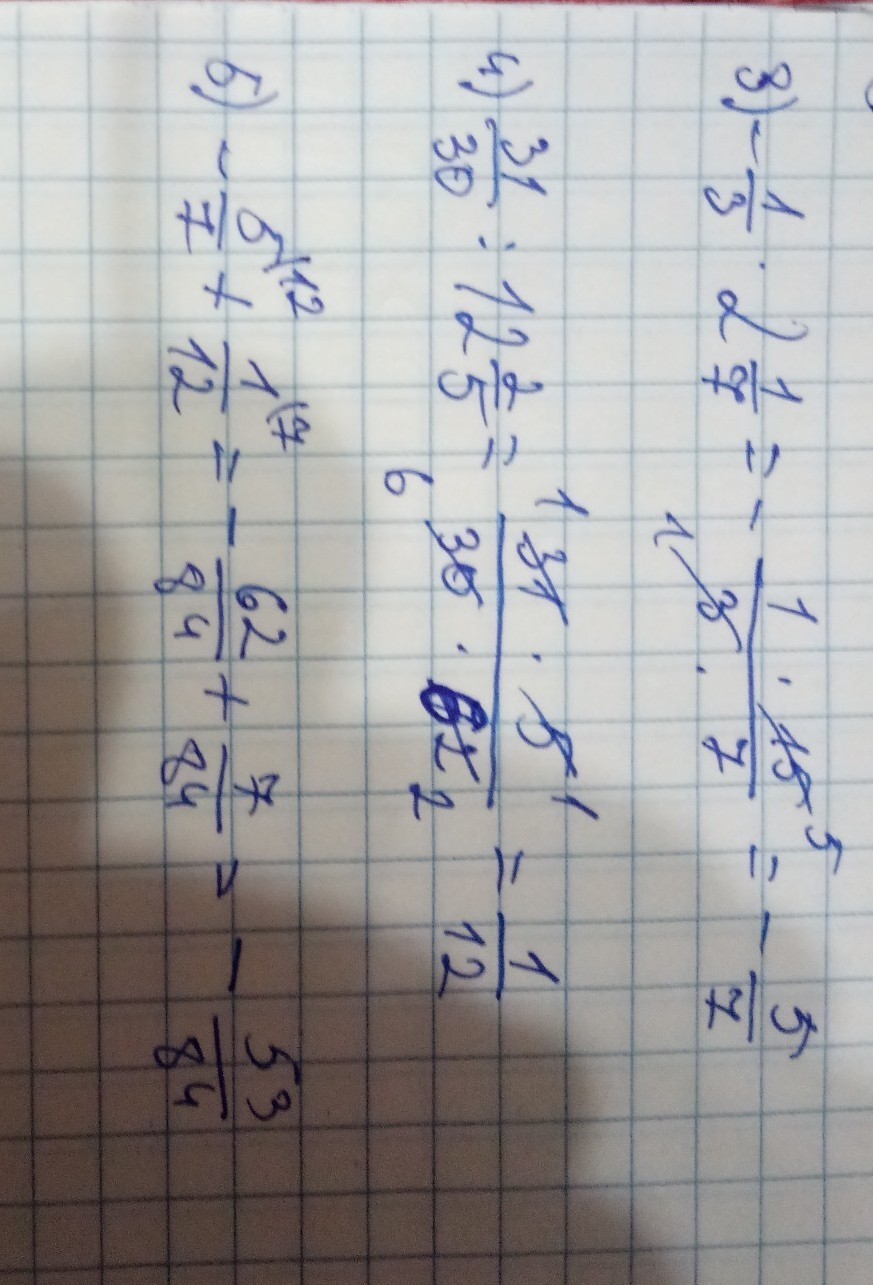 3) - 1/3 · 2 1/7 = - (1 · 15 5)/(1 3 · 7) = - 5/7
4) 31/30 : 12 2/5 = (1 31 · 5 1)/(6 30 · 62 2) = 1/12
5) - 5\12/7 + 1\7/12 = - 62/84 + 7/84 = - 53/84